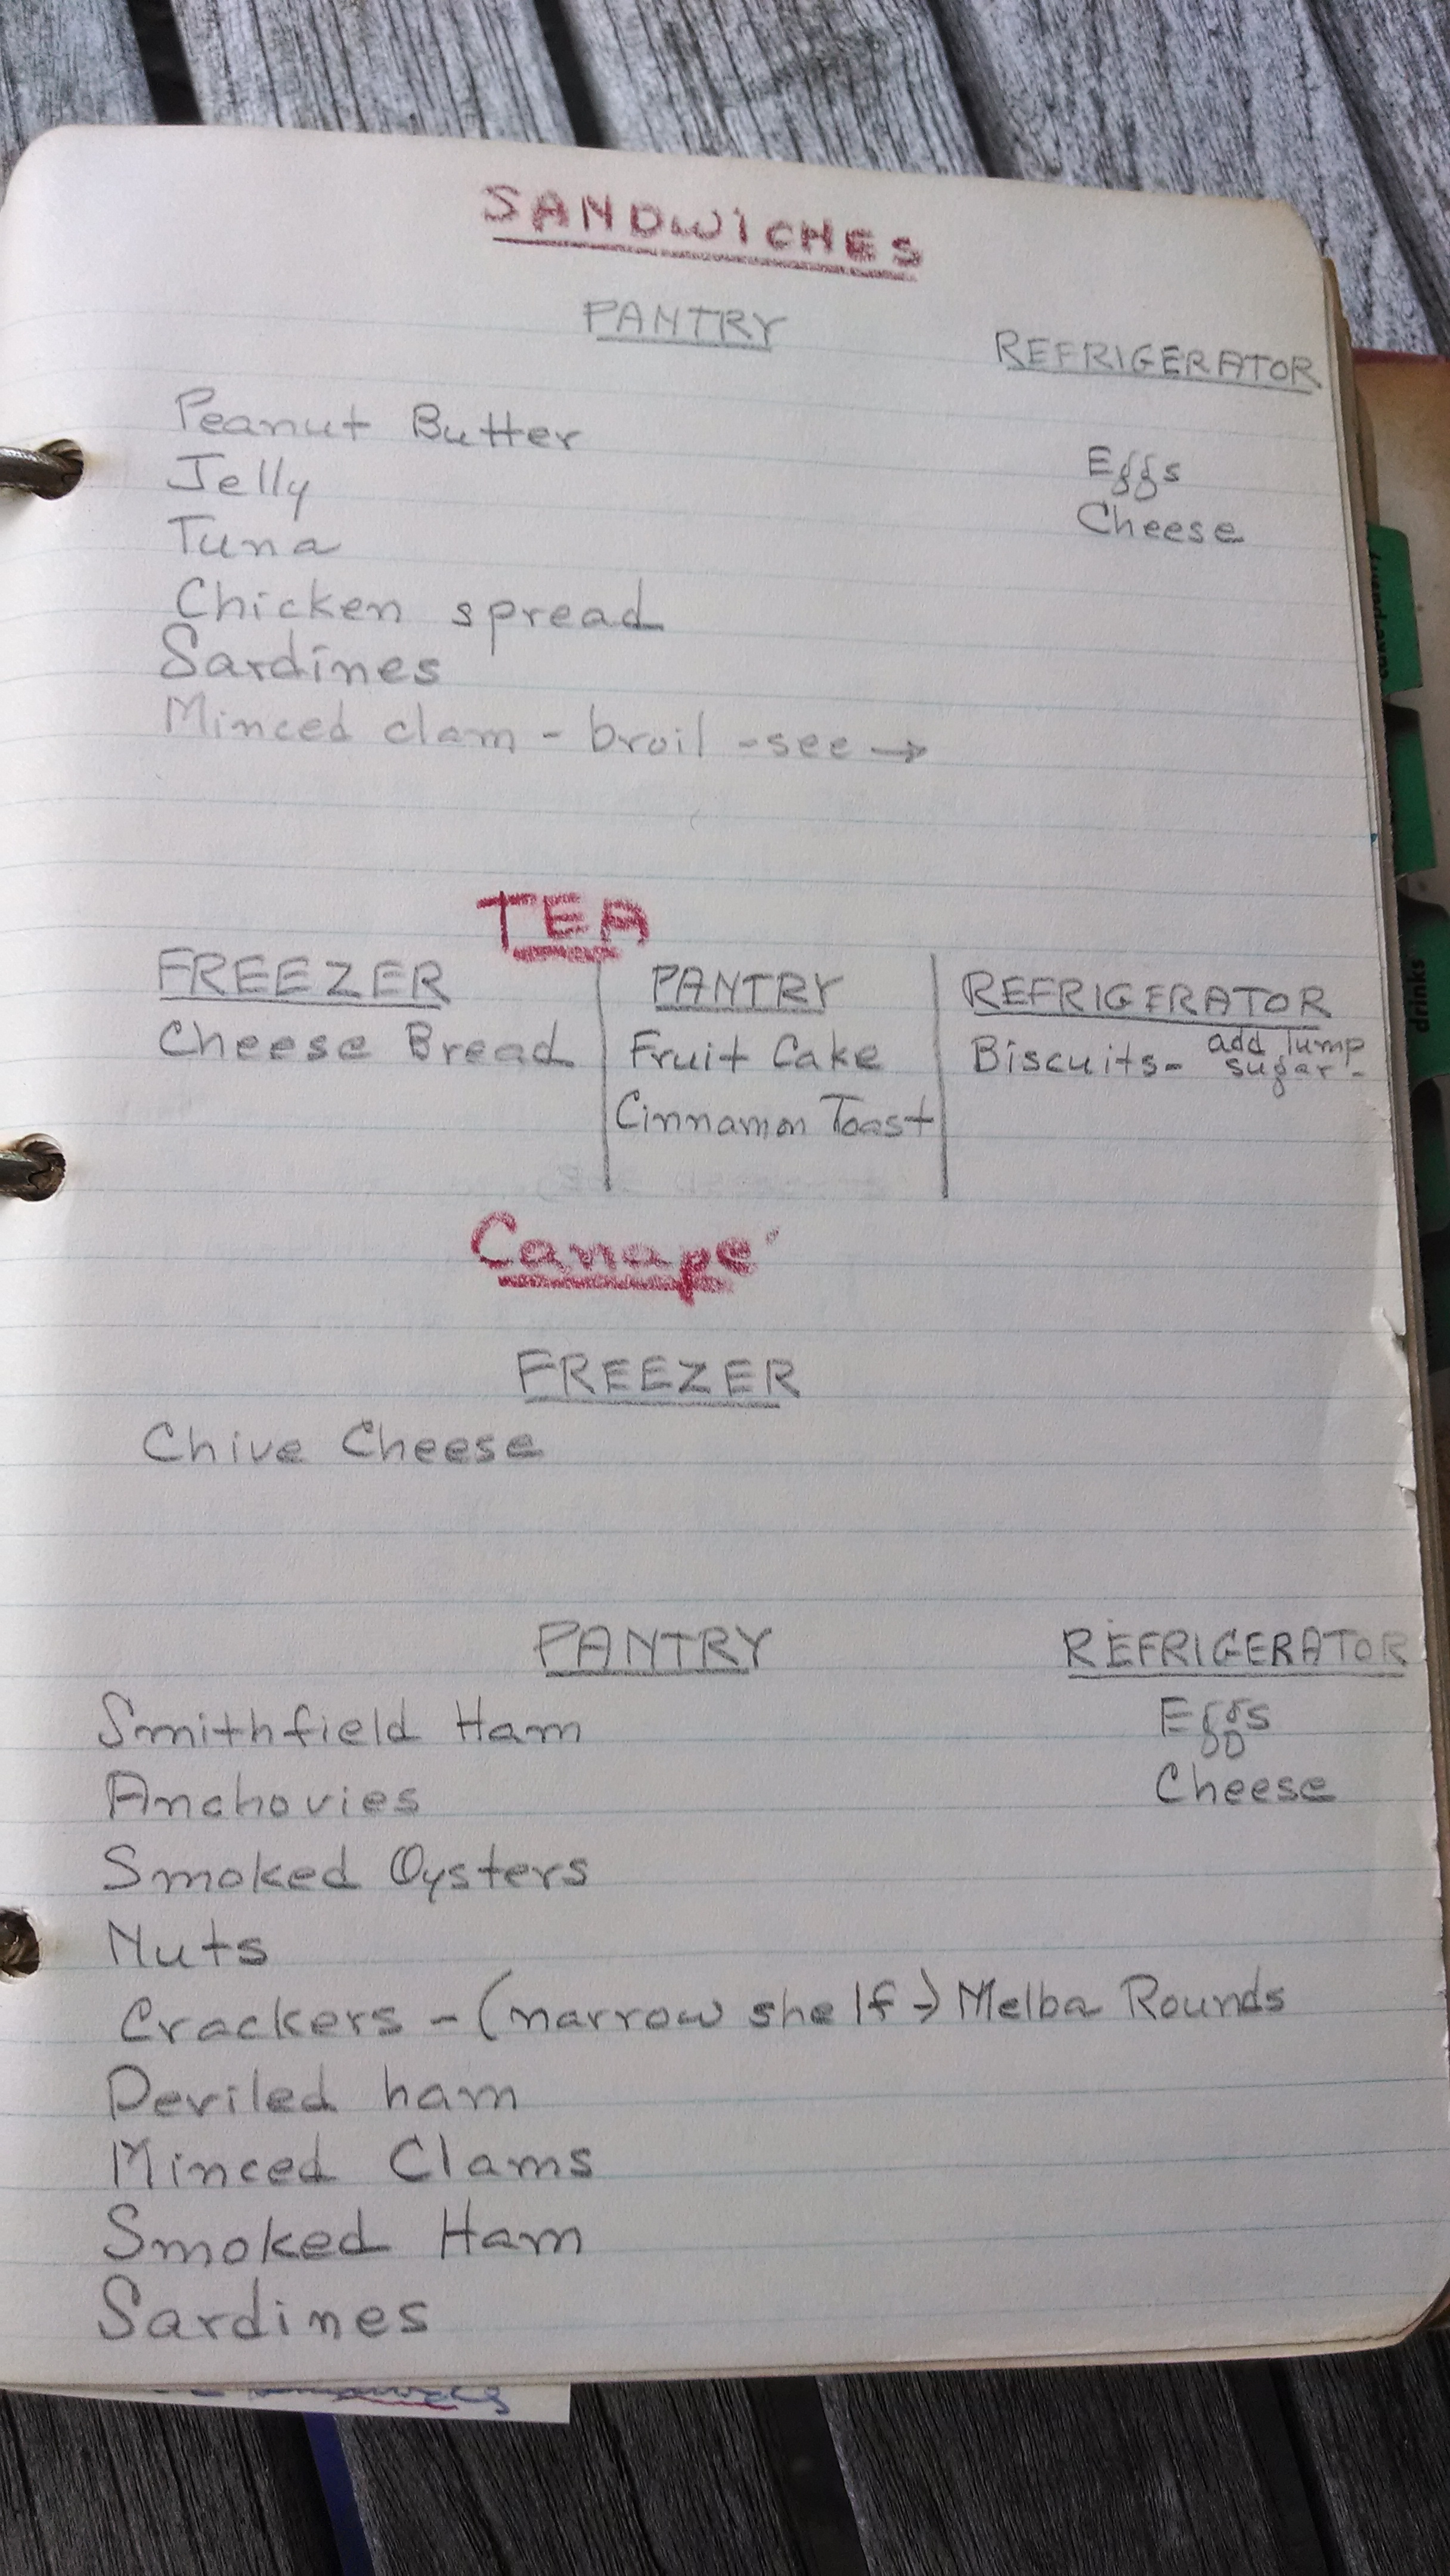 SANDWICHES
PANTRY
REFRIGERATOR
Peanut Butter
Eggs
Jelly
Cheese
Tuna
Chicken spread
Sardines
Minced clam - broil - see →
TEA
FREEZER
PANTRY
REFRIGERATOR
Cheese Bread
Fruit Cake
Biscuits - add lump
sugar -
Cinnamon Toast
Canapé
FREEZER
Chive Cheese
PANTRY
REFRIGERATOR
Smithfield Ham
Eggs
Anchovies
Cheese
Smoked Oysters
Nuts
Crackers - (narrow shelf →) Melba Rounds
Deviled ham
Minced Clams
Smoked Ham
Sardines
drinks